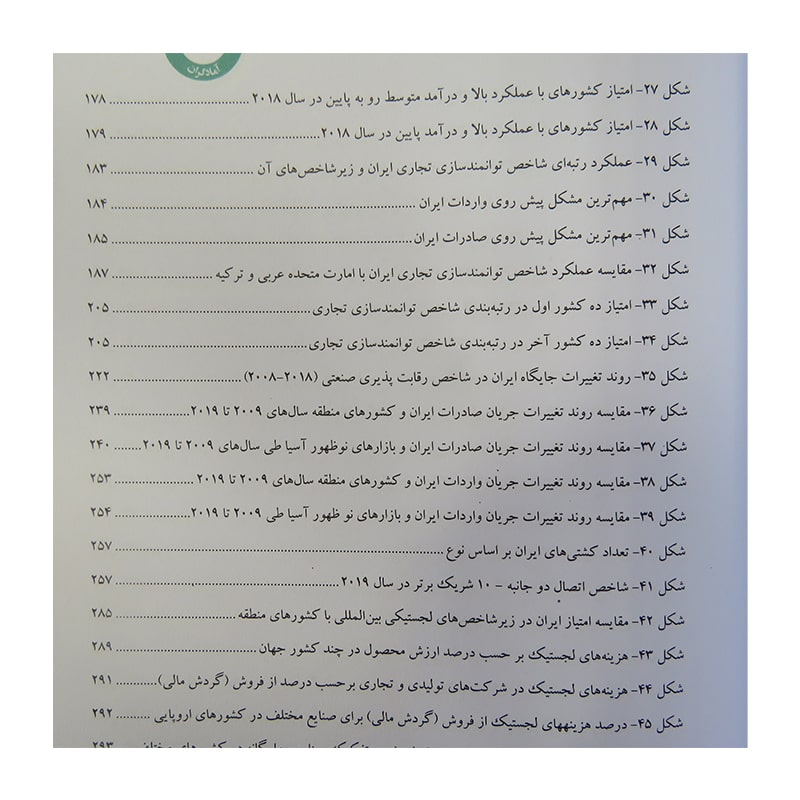 آمادگران
شکل ۲۷- امتیاز کشورهای با عملکرد بالا و درآمد متوسط رو به پایین در سال ۲۰۱۸ ........ ۱۷۸
شکل ۲۸- امتیاز کشورهای با عملکرد بالا و درآمد پایین در سال ۲۰۱۸ ........ ۱۷۹
شکل ۲۹- عملکرد رتبه‌ای شاخص توانمندسازی تجاری ایران و زیرشاخص‌های آن ........ ۱۸۳
شکل ۳۰- مهم‌ترین مشکل پیش روی واردات ایران ........ ۱۸۴
شکل ۳۱- مهم‌ترین مشکل پیش روی صادرات ایران ........ ۱۸۵
شکل ۳۲- مقایسه عملکرد شاخص توانمندسازی تجاری ایران با امارت متحده عربی و ترکیه ........ ۱۸۷
شکل ۳۳- امتیاز ده کشور اول در رتبه‌بندی شاخص توانمندسازی تجاری ........ ۲۰۵
شکل ۳۴- امتیاز ده کشور آخر در رتبه‌بندی شاخص توانمندسازی تجاری ........ ۲۰۵
شکل ۳۵- روند تغییرات جایگاه ایران در شاخص رقابت پذیری صنعتی (۲۰۱۸-۲۰۰۸) ........ ۲۲۲
شکل ۳۶- مقایسه روند تغییرات جریان صادرات ایران و کشورهای منطقه سال‌های ۲۰۰۹ تا ۲۰۱۹ ........ ۲۳۹
شکل ۳۷- مقایسه روند تغییرات جریان صادرات ایران و بازارهای نوظهور آسیا طی سال‌های ۲۰۰۹ تا ۲۰۱۹ ........ ۲۴۰
شکل ۳۸- مقایسه روند تغییرات جریان واردات ایران و کشورهای منطقه سال‌های ۲۰۰۹ تا ۲۰۱۹ ........ ۲۵۳
شکل ۳۹- مقایسه روند تغییرات جریان واردات ایران و بازارهای نو ظهور آسیا طی ۲۰۰۹ تا ۲۰۱۹ ........ ۲۵۴
شکل ۴۰- تعداد کشتی‌های ایران بر اساس نوع ........ ۲۵۷
شکل ۴۱- شاخص اتصال دو جانبه - ۱۰ شریک برتر در سال ۲۰۱۹ ........ ۲۵۷
شکل ۴۲- مقایسه امتیاز ایران در زیرشاخص‌های لجستیکی بین‌المللی با کشورهای منطقه ........ ۲۸۵
شکل ۴۳- هزینه‌های لجستیک بر حسب درصد ارزش محصول در چند کشور جهان ........ ۲۸۹
شکل ۴۴- هزینه‌های لجستیک در شرکت‌های تولیدی و تجاری برحسب درصد از فروش (گردش مالی) ........ ۲۹۱
شکل ۴۵- درصد هزینههای لجستیک از فروش (گردش مالی) برای صنایع مختلف در کشورهای اروپایی ........ ۲۹۲
۲۹۳